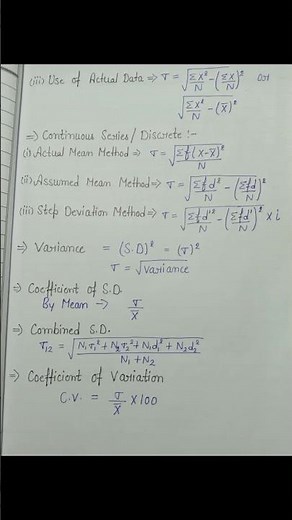 (iii) Use of Actual Data ⇒ σ = √(ΣX²/N − (ΣX/N)²) Or
√(ΣX²/N − (X̄)²)
⇒ Continuous Series / Discrete :-
(i) Actual Mean Method ⇒ σ = √(Σf(X−X̄)²/N)
(ii) Assumed Mean Method ⇒ σ = √(Σfd²/N − (Σfd/N)²)
(iii) Step Deviation Method ⇒ σ = √(Σfd'²/N − (Σfd'/N)²) × i
⇒ Variance = (S.D)² = (σ)²
σ = √Variance
⇒ Coefficient of S.D.
By Mean → σ/X̄
⇒ Combined S.D.
σ₁₂ = √((N₁σ₁² + N₂σ₂² + N₁d₁² + N₂d₂²)/(N₁ + N₂))
⇒ Coefficient of Variation
C.V. = σ/X̄ × 100